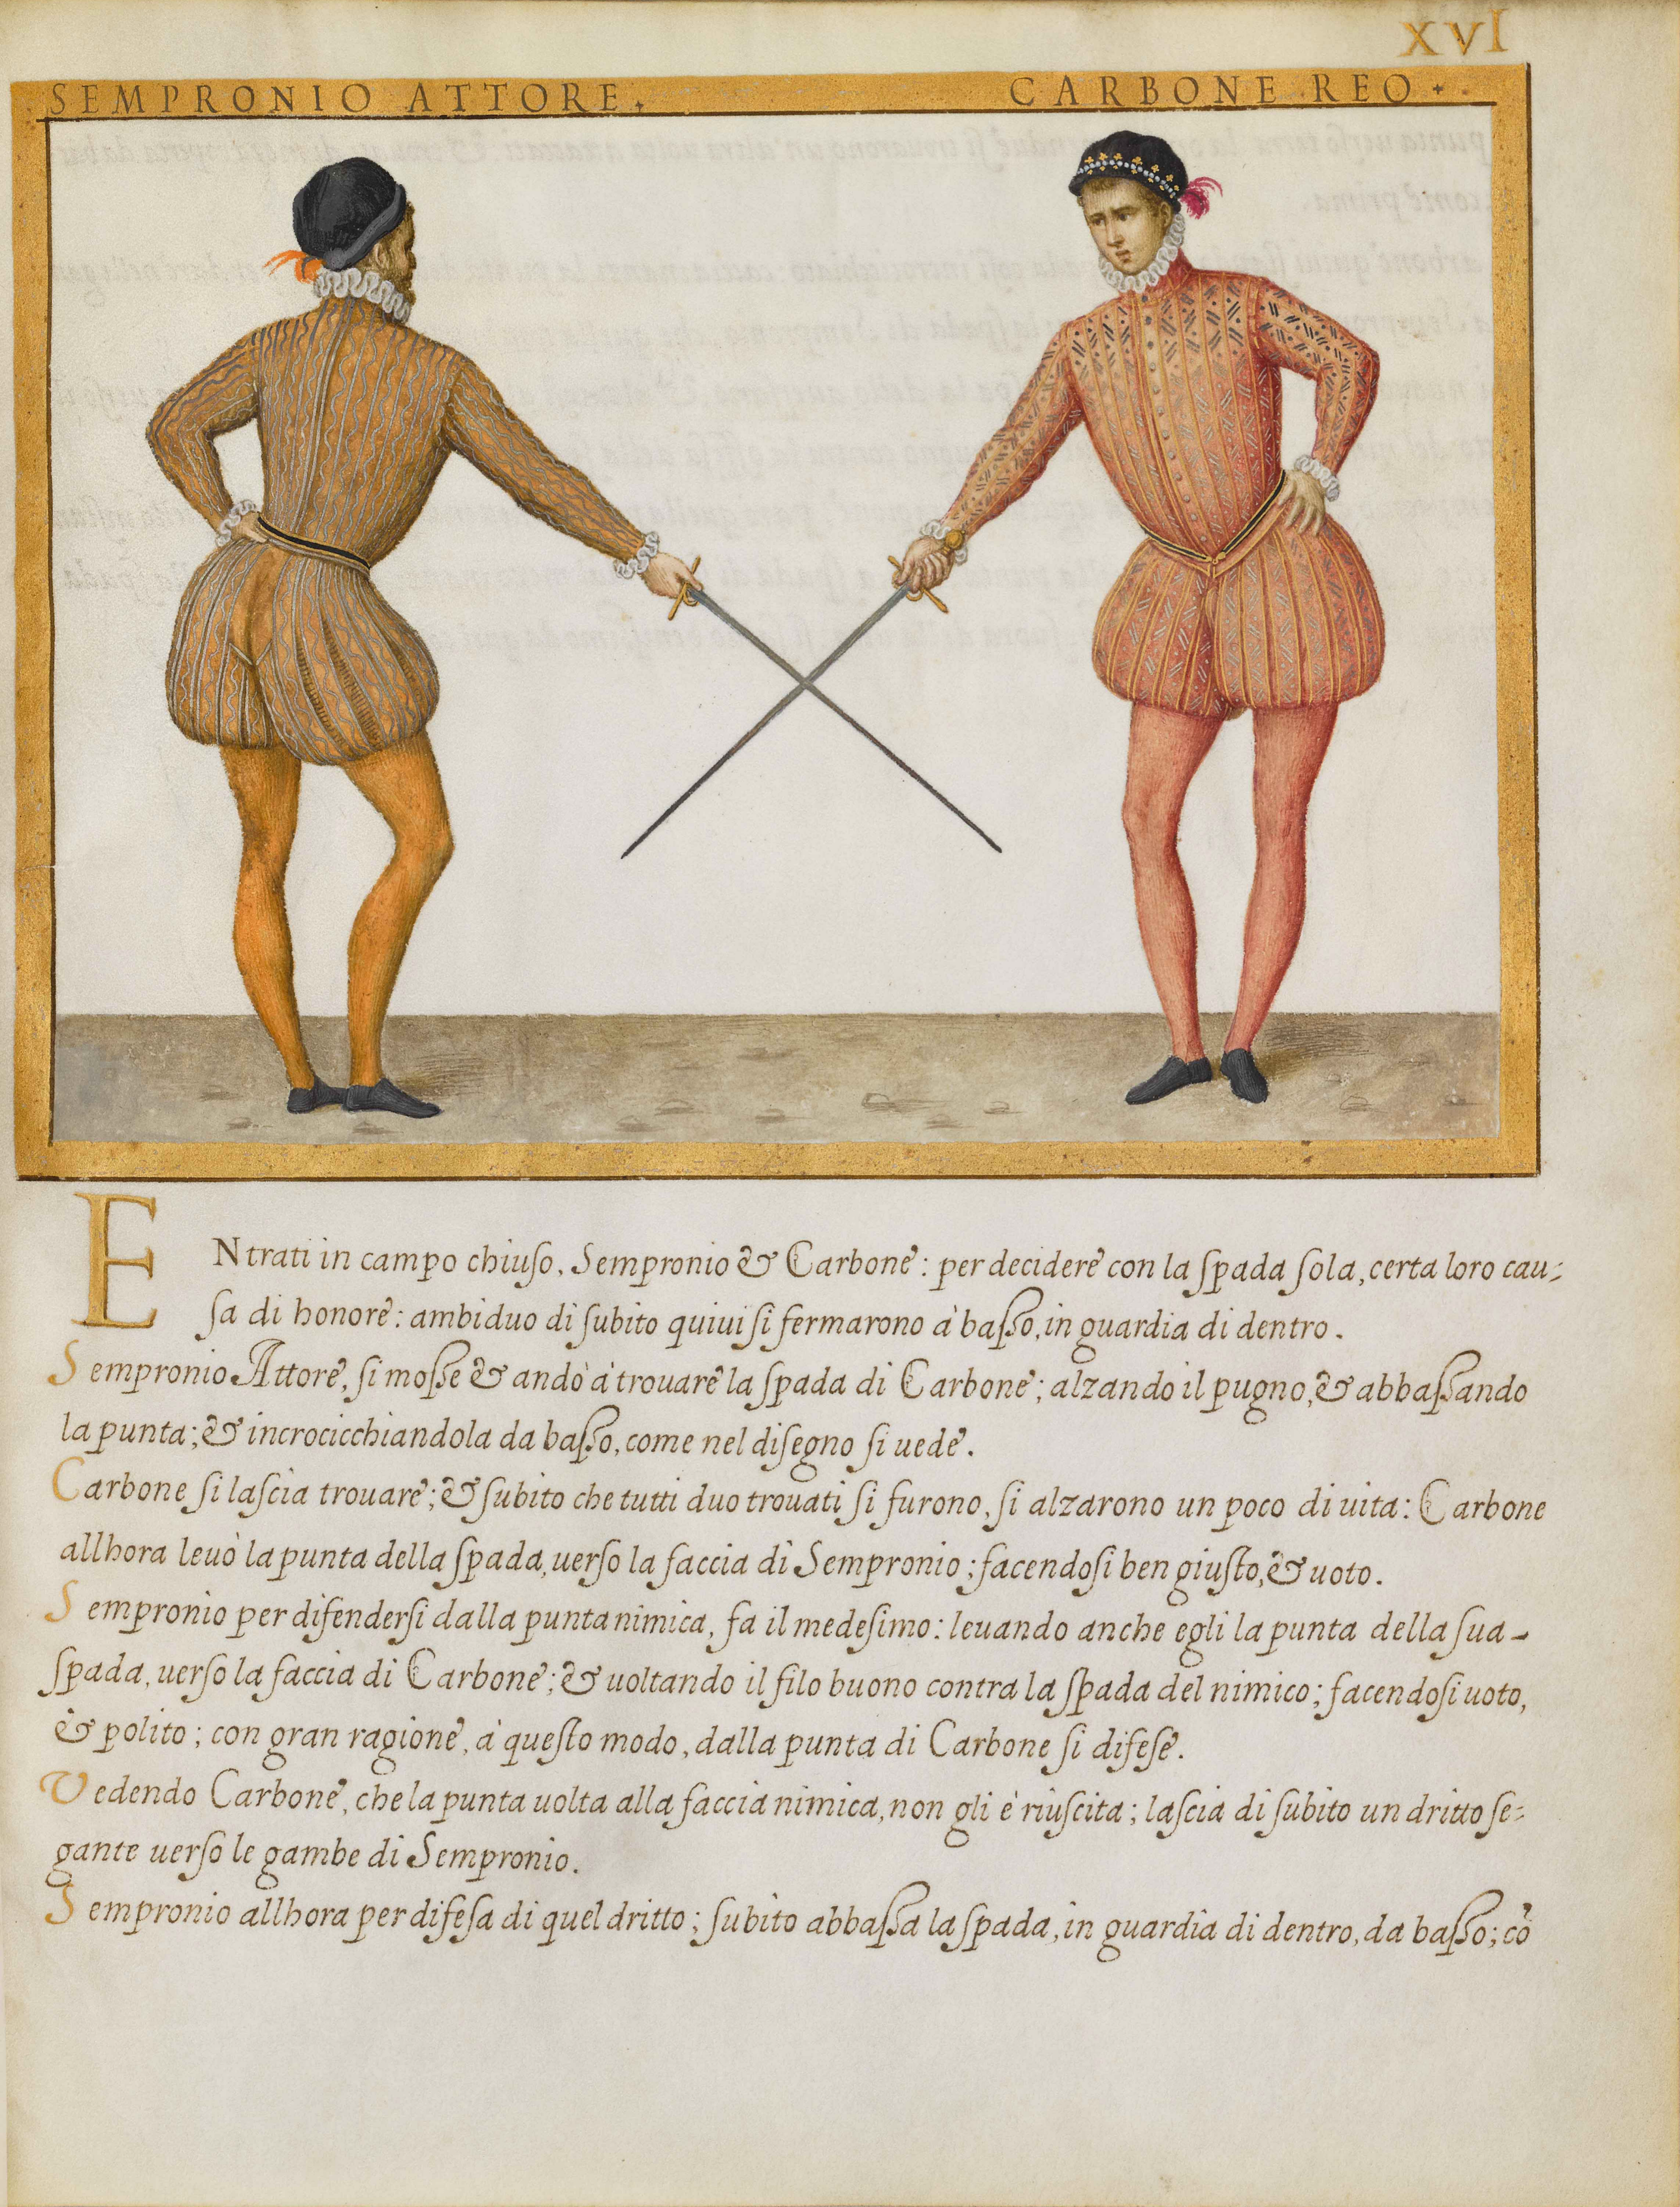 XVI
SEMPRONIO ATTORE.
CARBONE REO.
ENtrati in campo chiuſo, Sempronio & Carbone: per decidere con la ſpada ſola, certa loro cau-
ſa di honore: ambiduo di ſubito quiui ſi fermarono à baſſo, in guardia di dentro.
Sempronio Attore, ſi moſſe & andò à trouare la ſpada di Carbone; alzando il pugno, & abbaſſando
la punta; & incrocicchiandola da baſſo, come nel diſegno ſi uede.
Carbone ſi laſcia trouare; & ſubito che tutti duo trouati ſi furono, ſi alzarono un poco di uita: Carbone
allhora leuò la punta della ſpada, uerſo la faccia di Sempronio; facendoſi ben giuſto, & uoto.
Sempronio per difenderſi dalla punta nimica, fa il medeſimo: leuando anche egli la punta della ſua
ſpada, uerſo la faccia di Carbone; & uoltando il filo buono contra la ſpada del nimico; facendoſi uoto,
& polito; con gran ragione, à queſto modo, dalla punta di Carbone ſi difeſe.
Vedendo Carbone, che la punta uolta alla faccia nimica, non gli è riuſcita; laſcia di ſubito un dritto ſe-
gante uerſo le gambe di Sempronio.
Sempronio allhora per difeſa di quel dritto; ſubito abbaſſa la ſpada, in guardia di dentro, da baſſo; cõ